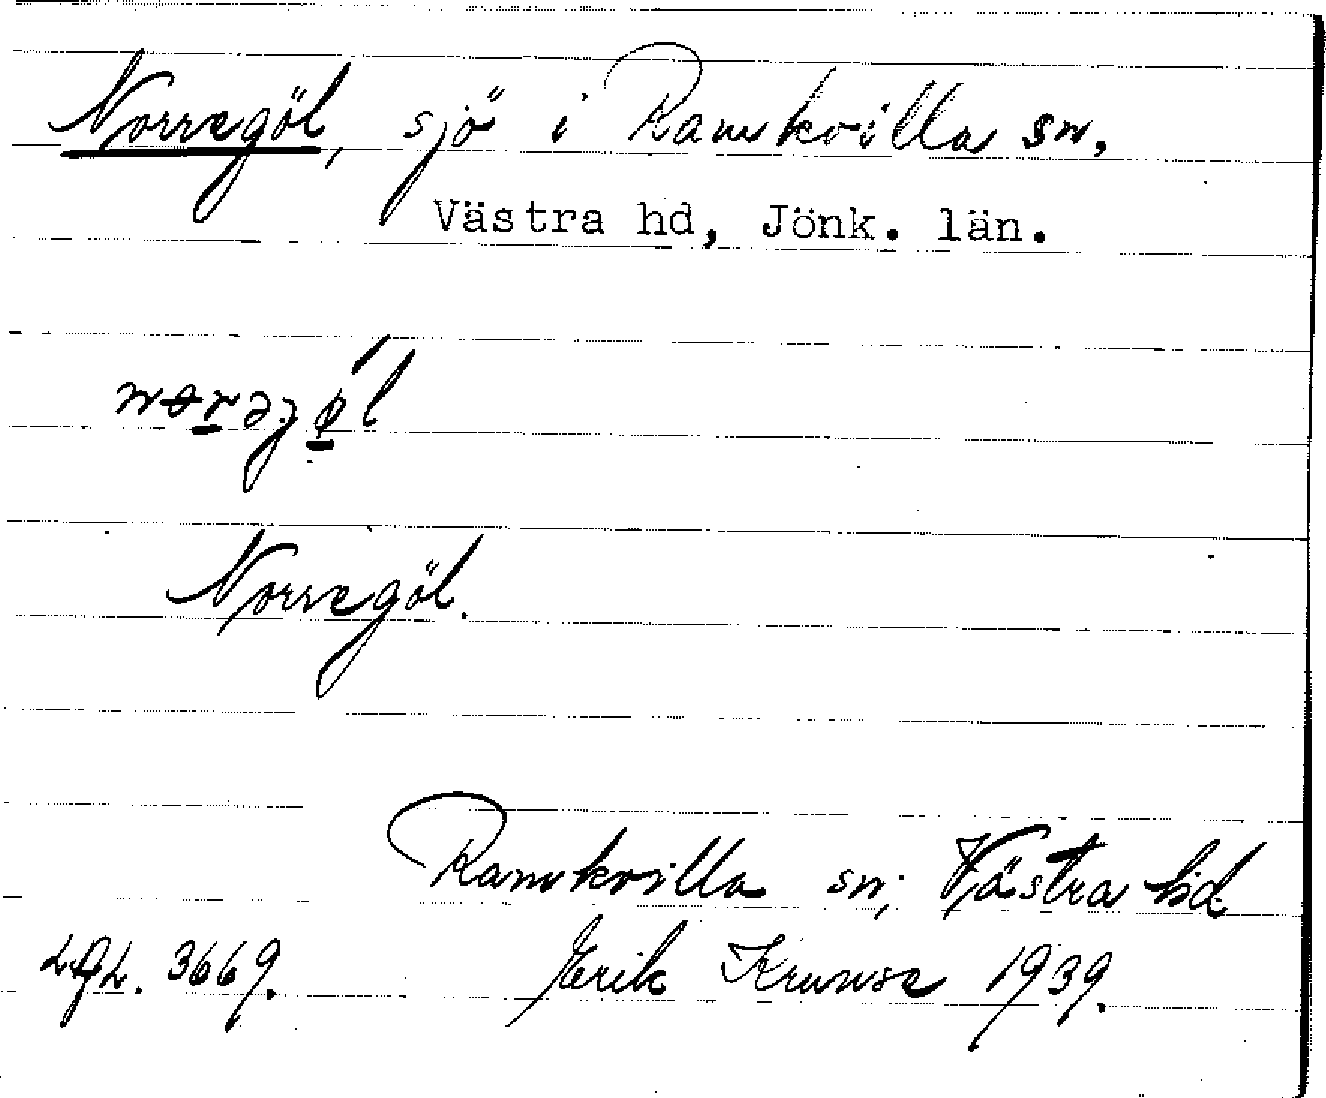 Norregöl, sjö i Ramkvilla sn.
Västra hd, Jönk. län.
Norregöl.
Ramkvilla sn; Västra hd
3669. Erik 1939.